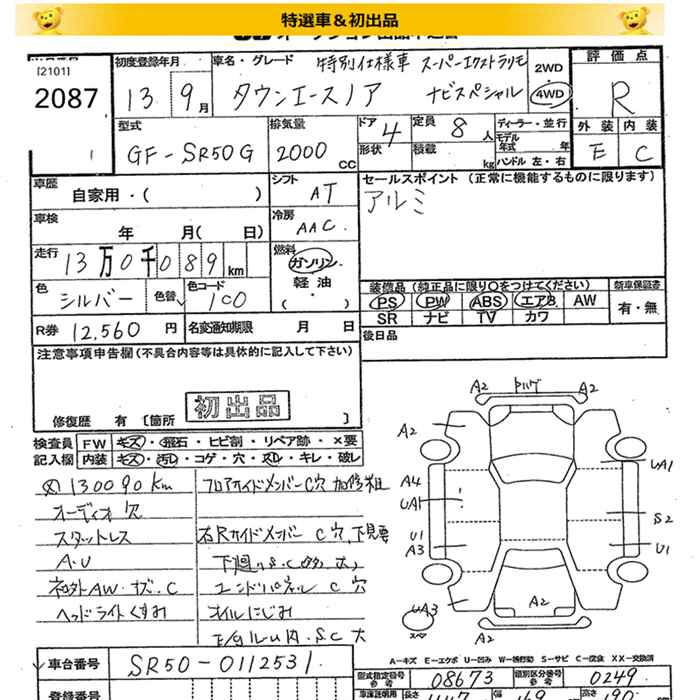 特選車＆初出品
[2101]
2087
初度登録年月
13 9月
車名・グレード
特別仕様車 スーパーエクストラリモ
タウンエースノア ナビスペシャル
2WD
4WD
評価点
R
外装 内装
E C
型式
GF-SR50G
排気量
2000 CC
ドア 4
形状
定員 8人
積載 kg
ディーラー・並行
モデル年式 年
ハンドル 左・右
車歴
自家用・( )
シフト
AT
セールスポイント (正常に機能するものに限ります)
アルミ
車検
年 月( 日)
冷房
AAC
走行
13万0千089km
燃料
ガソリン
軽油
・( )
色
シルバー
色替
色コード
1C0
装備品 (純正品に限り○をつけてください)
PS PW ABS エアB AW
SR ナビ TV カワ
新車保証書
有・無
R券 12,560 円
名変通知期限 月 日
後日品
注意事項申告欄 (不具合内容等は具体的に記入して下さい)
初出品
修復歴 有 [箇所 ]
検査員記入欄
FW キズ・飛石・ヒビ割・リペア跡・×要
内装 キズ・汚レ・コゲ・穴・スレ・キレ・破レ
130090km
オーディオ欠
スタットレス
A.U
ヘッドライトくすみ
フロアサイドメンバーC穴 加修粗
右Rサイドメンバー C穴,下見要
エンドパネル C 穴
オイルにじみ
A2 トルゲ A2
A2
A4
UA1
U1
A3
UA3
UA1
S2
U1
A2
A2
A-キズ E-エクボ U-凹み W-補修跡 S-サビ C-腐食 XX-交換済
車台番号 SR50-0112531
型式指定番号 参考 08673
類別区分番号 参考 0249
登録番号